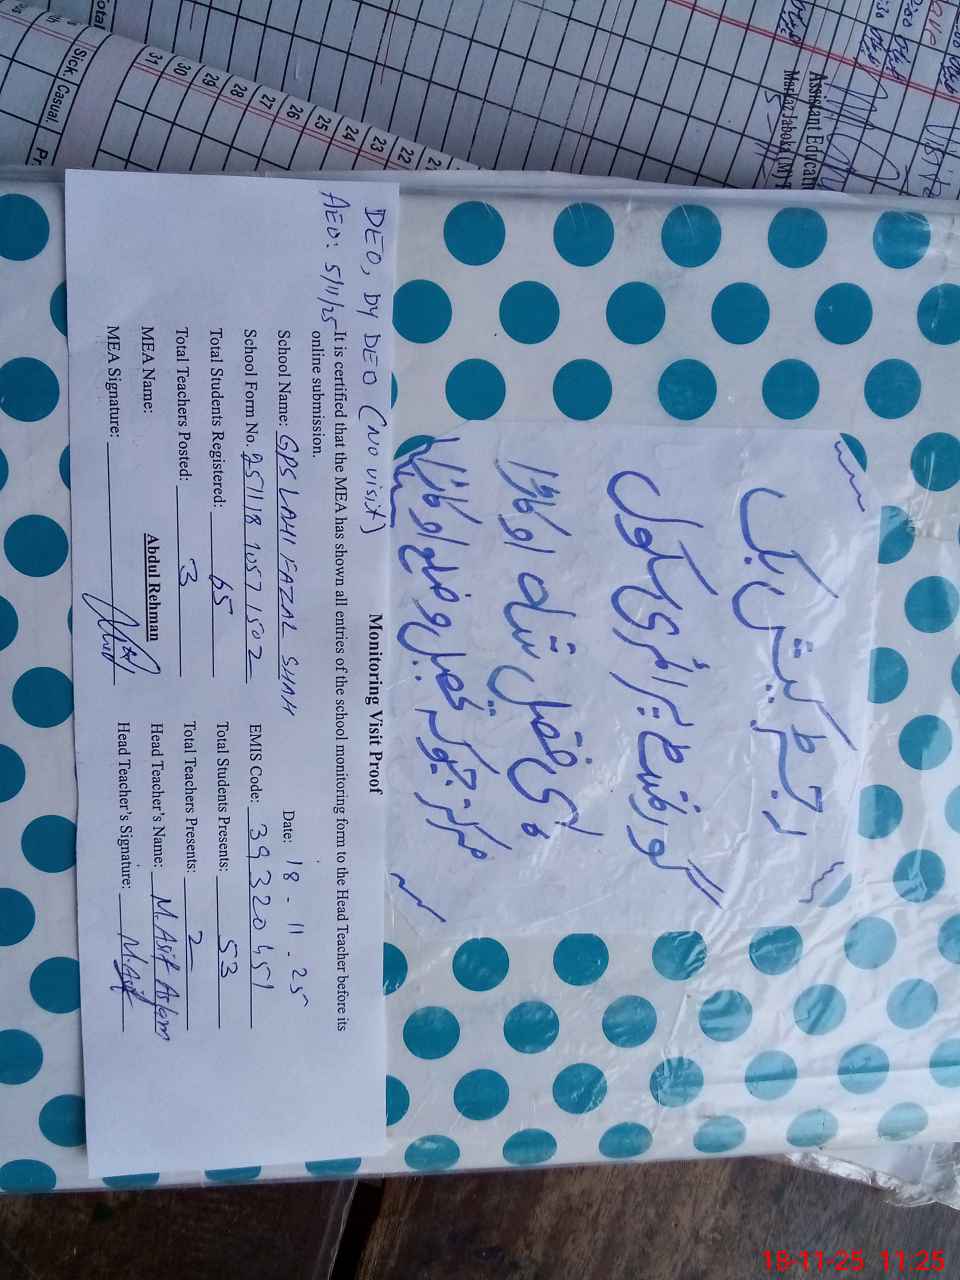 Total
Sick.
Casual.
31
30
29
28
27
26
25
24
23
22
Assistant Educati
Markaz Jaboka (M)
رجسٹر
گورنمنٹ پرائمری سکول
مرکز جبوکہ تحصیل و ضلع اوکاڑہ
DEO, DY DEO (NO visit)
AEO: 5/11/25
Monitoring Visit Proof
It is certified that the MEA has shown all entries of the school monitoring form to the Head Teacher before its
online submission.
Date: 18-11-25
School Name: GPS LAHI FAZAL SHAH
School Form No. 251118 1057 1502 EMIS Code: 39320451
Total Students Registered: 65 Total Students Presents: 53
Total Teachers Posted: 3 Total Teachers Presents: 2
MEA Name: Abdul Rehman Head Teacher's Name: M.Asif Aslam
MEA Signature: Head Teacher's Signature: M.Asif
18-11-25 11:25